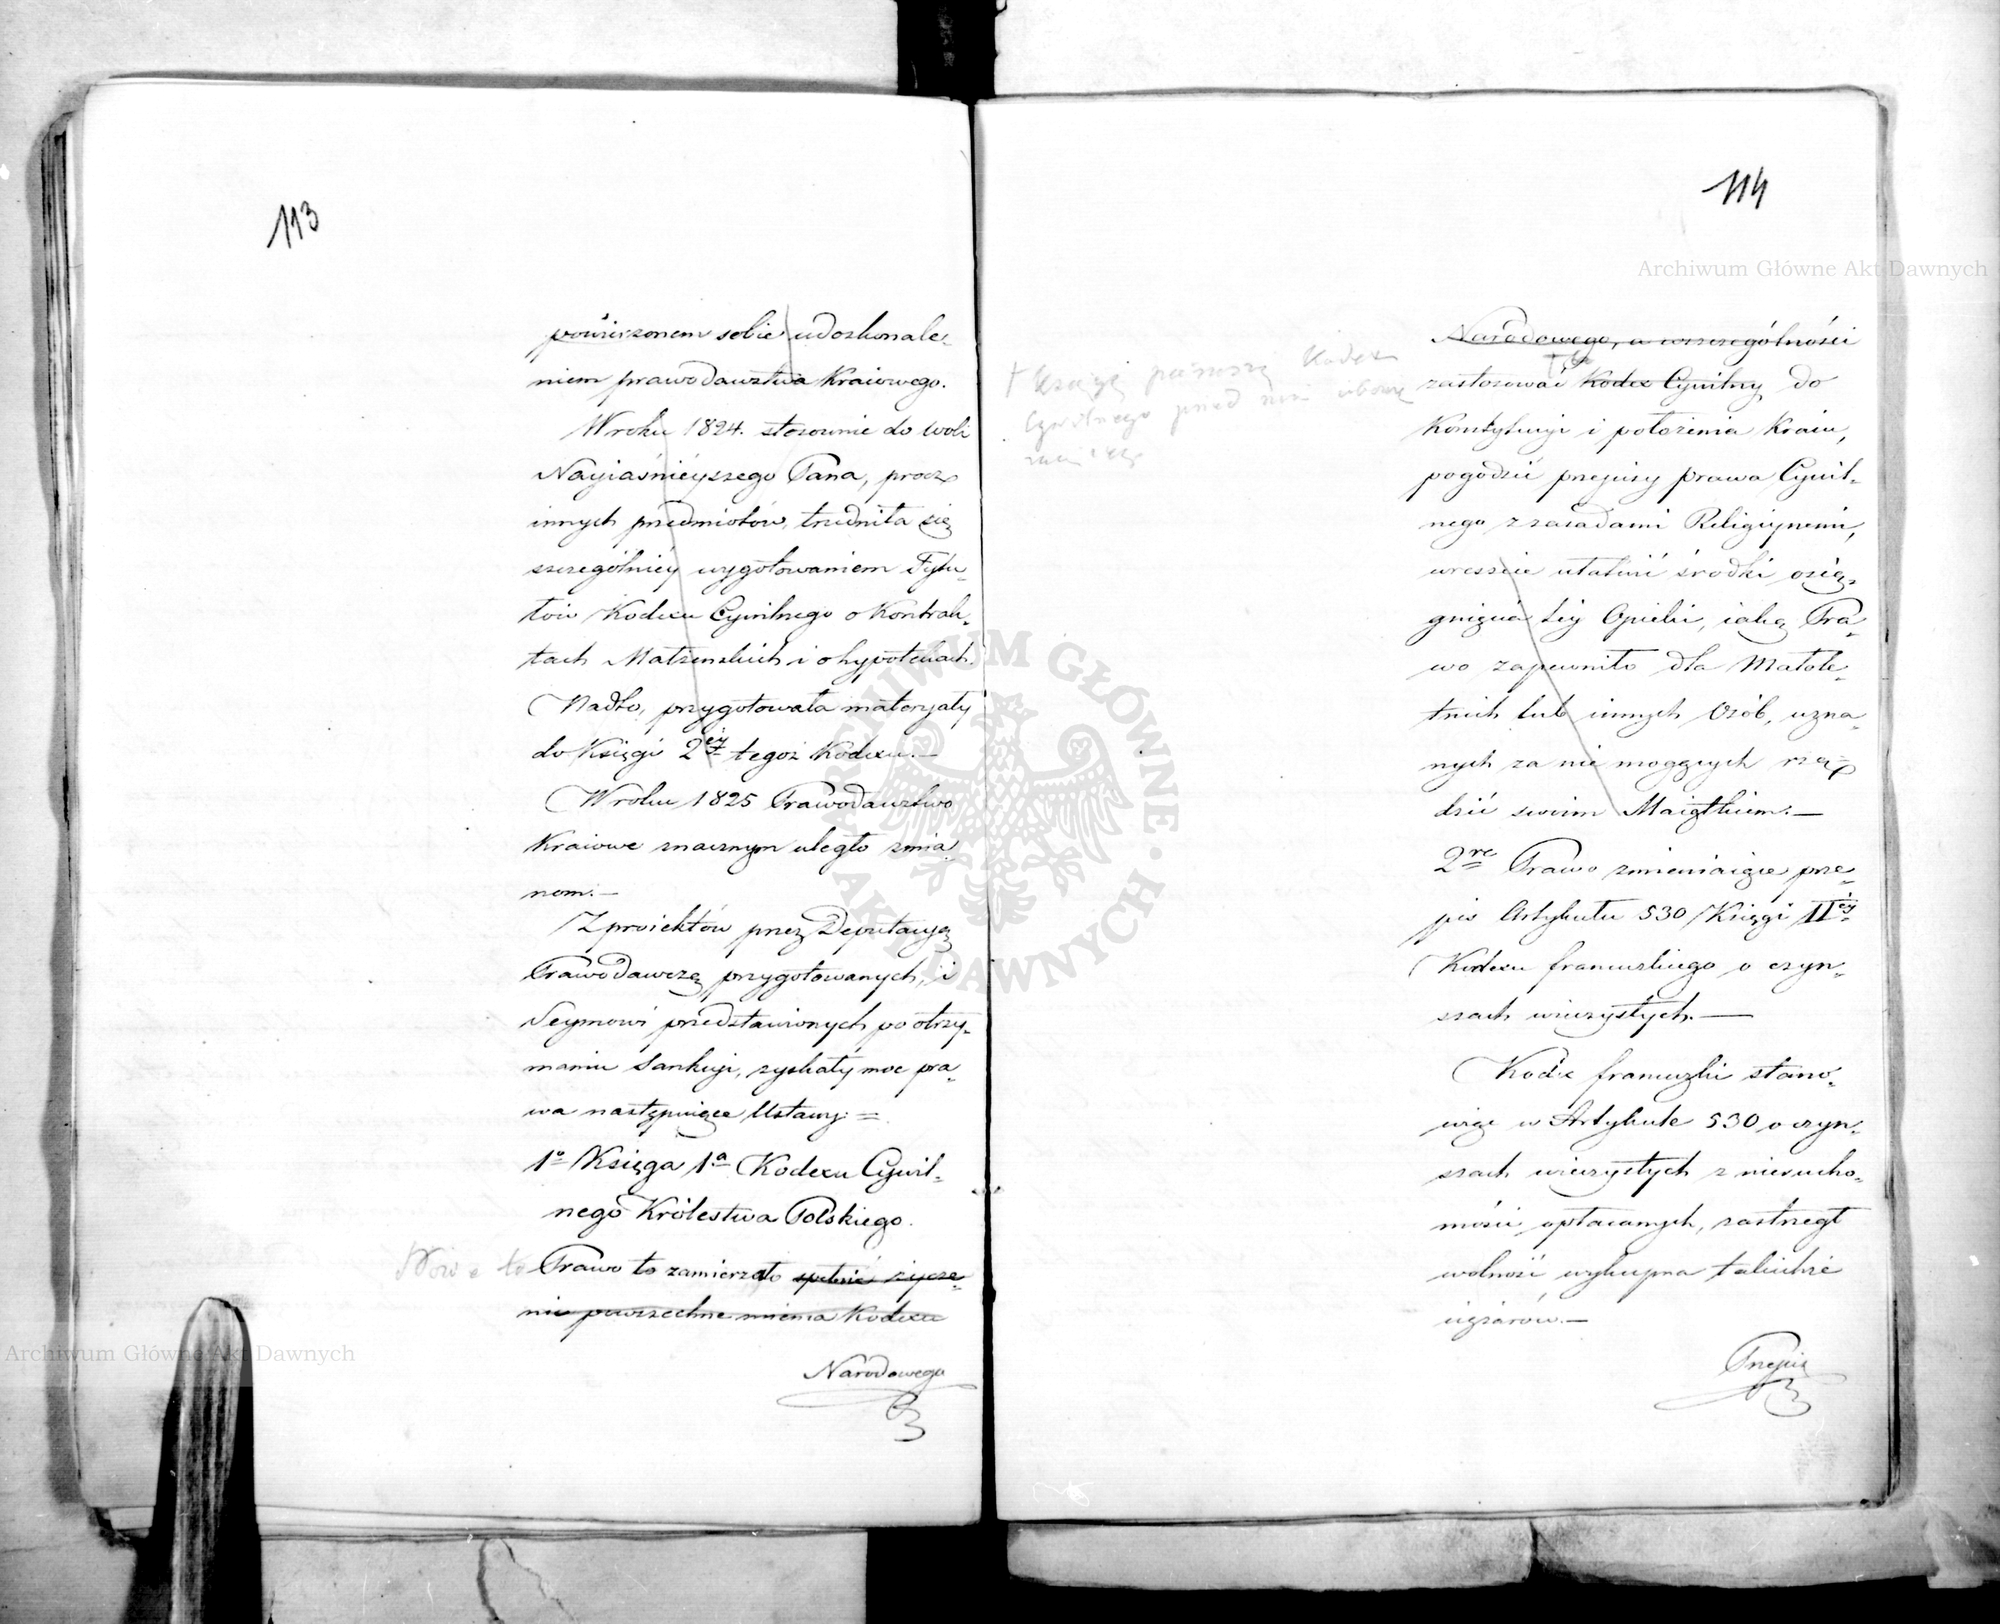 113
powierzonem sobie udoskonale-
niem prawodawstwa Kraiowego.
W roku 1824. stosownie do woli
Nayiaśnieyszego Pana, procz
innych przedmiotów, trudniła się
szczególniey wygotowaniem Tytu-
łów Kodexu Cywilnego o Kontrak-
tach Małżenskich i o hypotekach.
Nadto, przygotowała materyały
do Księgi 2éy tegoż Kodexu.—
W roku 1825 Prawodawstwo
Kraiowe znacznym uległo zmia-
nom.—
Z proiektów przez Deputacyą
Prawodawczą przygotowanych, i
Seymowi przedstawionych po otrzy-
maniu Sankcyi, zyskały moc pra-
wa następuiące Ustawy: =
1º Księga 1ª Kodexu Cywil-
nego Królestwa Polskiego.
Prawo to zamierzało spełnić życze-
nie powszechne mienia Kodexu
Narodowego
114
Narodowego, w szczególności
zastosować Kodex Cywilny do
Konstytucyi i położenia Kraiu,
pogodzić przepisy prawa Cywil-
nego z zasadami Religiynemi,
wreszcie ułatwić środki osią-
gnięcia tey Opieki, iaką Pra-
wo zapewniło dla Małole-
tnich lub innych Osób, uzna-
nych za nie mogących rzą-
dzić swoim Maiątkiem.—
2re Prawo zmieniaiące prze-
pis Artykułu 530 Księgi IIéy
Kodexu francuzkiego o czyn-
szach wieczystych.—
Kodex francuzki stano-
wiąc w Artykule 530 o czyn-
szach wieczystych z nierucho-
mości opłacanych, zastrzegł
wolność wykupna takichże
ciężarów.—
Przepis
† Księgę pierwszą Kodex
Cywilnego przed nim
Archiwum Główne Akt Dawnych
Archiwum Główne Akt Dawnych
ARCHIWUM GŁÓWNE AKT DAWNYCH